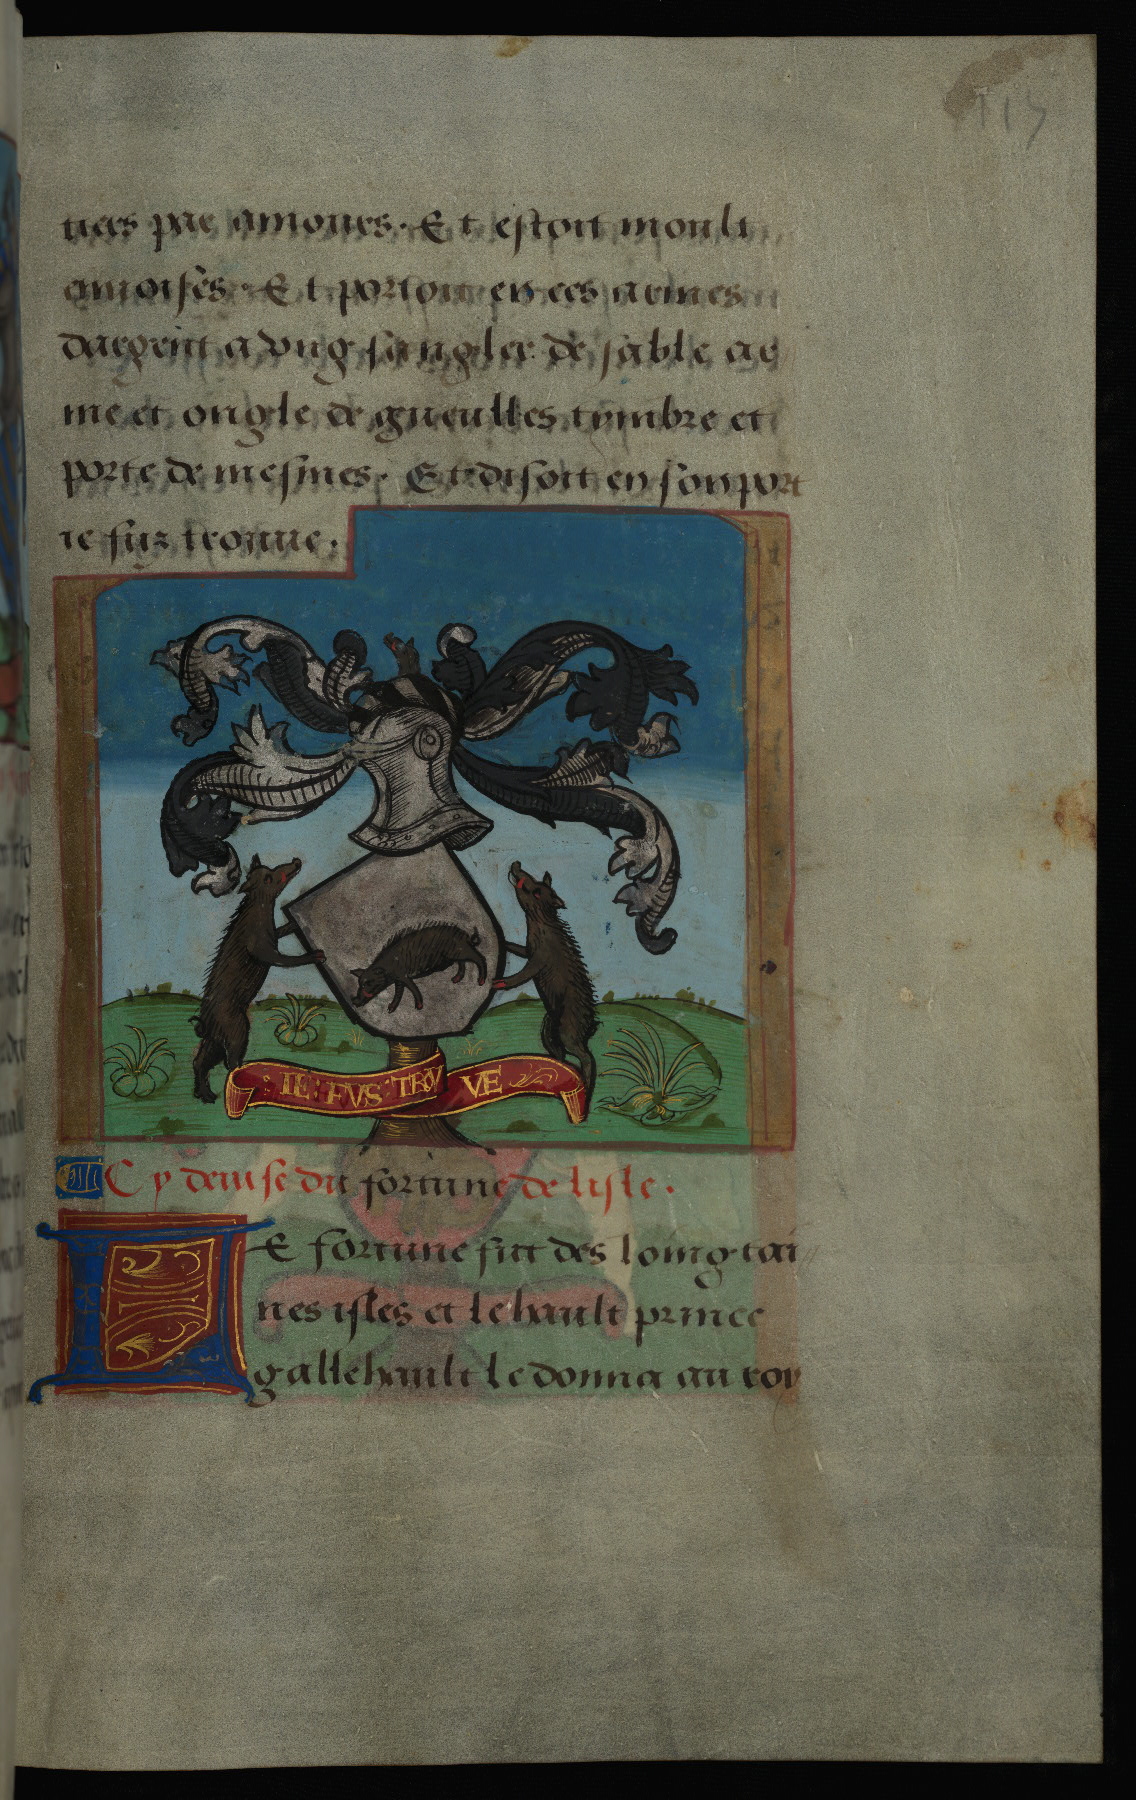 117
tiers par amours. Et estoit moult
enuoisès. Et portoit en ces armes
dargent a vng sanglier de sable ar
me et ongle de gueulles tymbre et
porte de mesmes. Et disoit en son port
ie fuz trouue.
IE FVS TROVVE
Cy deuise du fortune de lisle.
LE fortune fut des loingtai
nes isles et le hault prince
gallehault le donna au roy